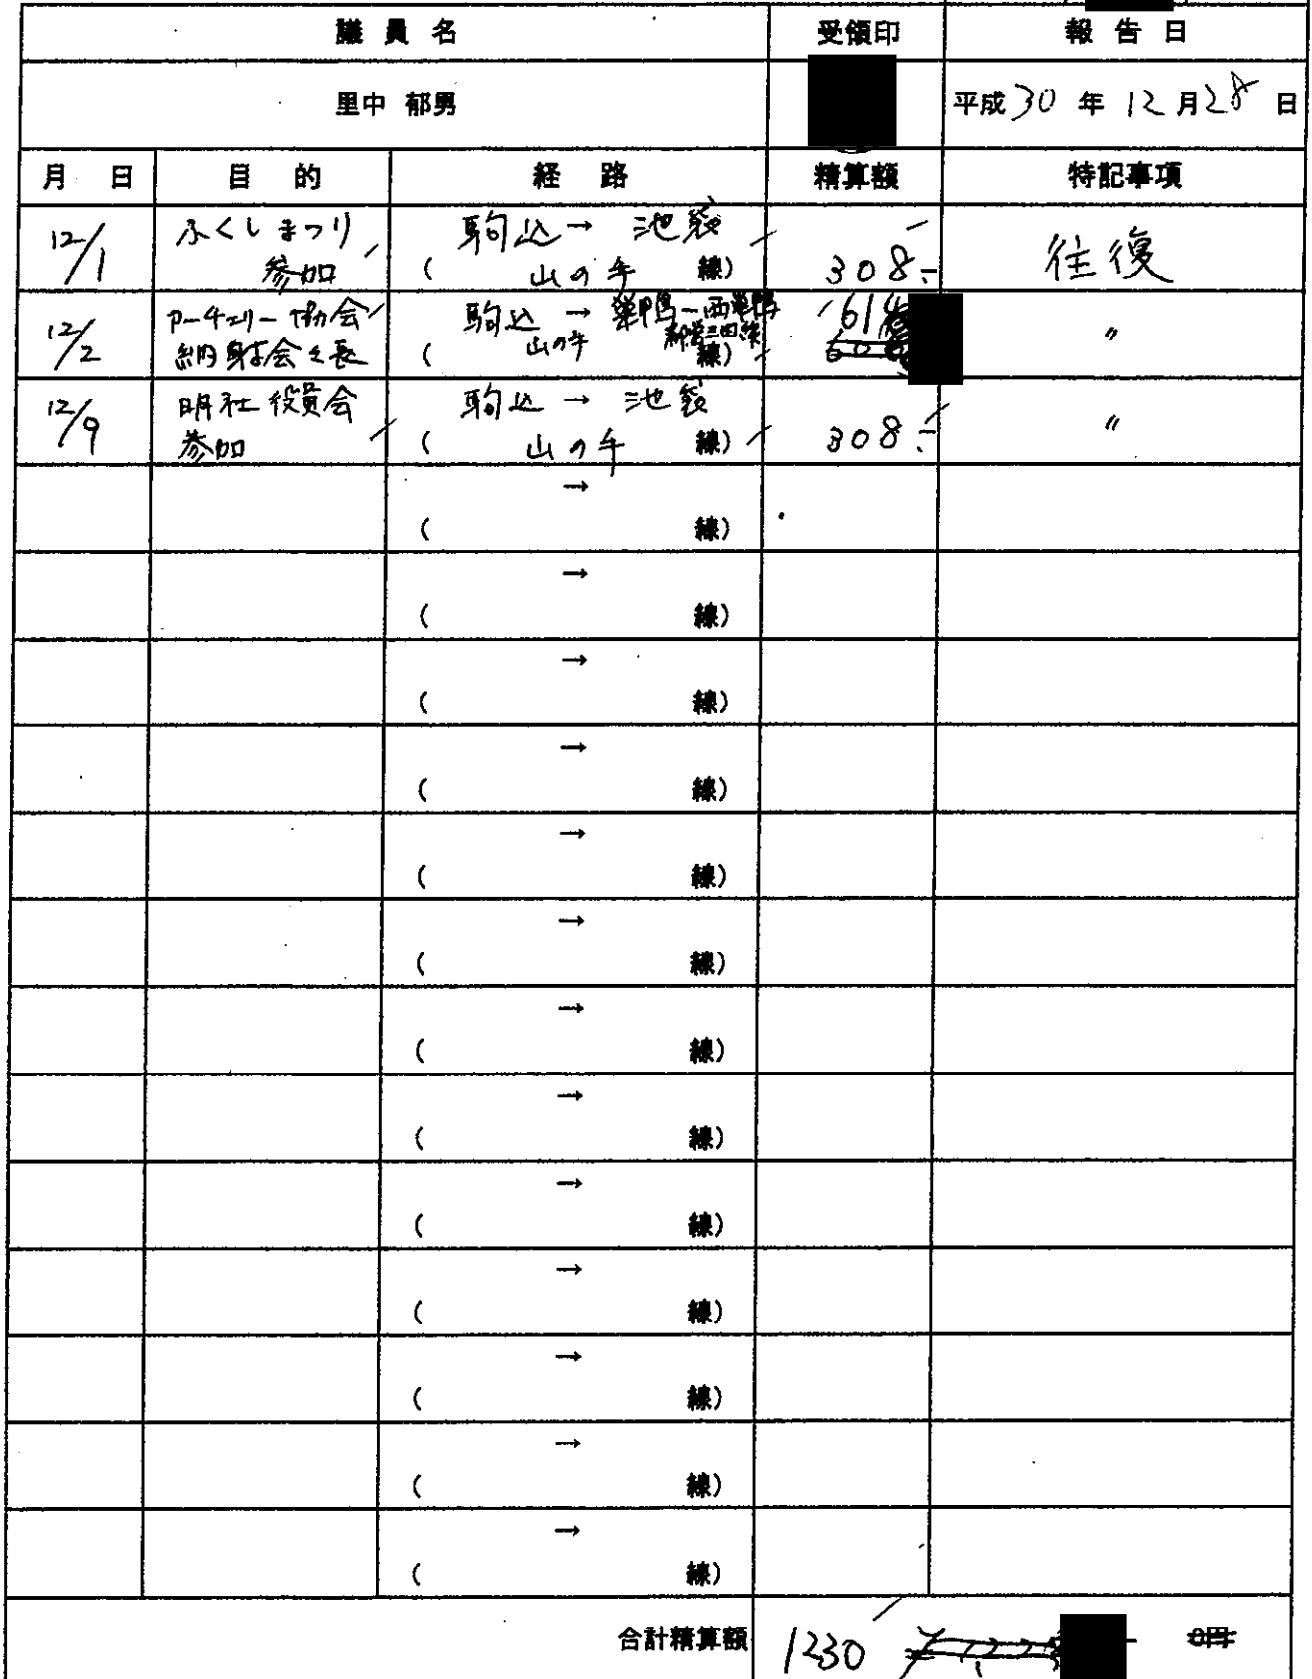 議員名 受領印 報告日
里中 郁男 平成30年12月28日
月 日 目 的 経 路 精算額 特記事項
12/1 ふくしまつり 駒込 → 池袋
参加 ( 山の手 線) 308.- 往復
12/2 アーチェリー協会 駒込 → 巣鴨-西巣鴨 614
納射会 ( 山の手 都営三田線 線) 〃
12/9 明社役員会 駒込 → 池袋
参加 ( 山の手 線) 308.- 〃
→
( 線)
→
( 線)
→
( 線)
→
( 線)
→
( 線)
→
( 線)
→
( 線)
→
( 線)
→
( 線)
→
( 線)
→
( 線)
→
( 線)
→
( 線)
合計精算額 1230 0円